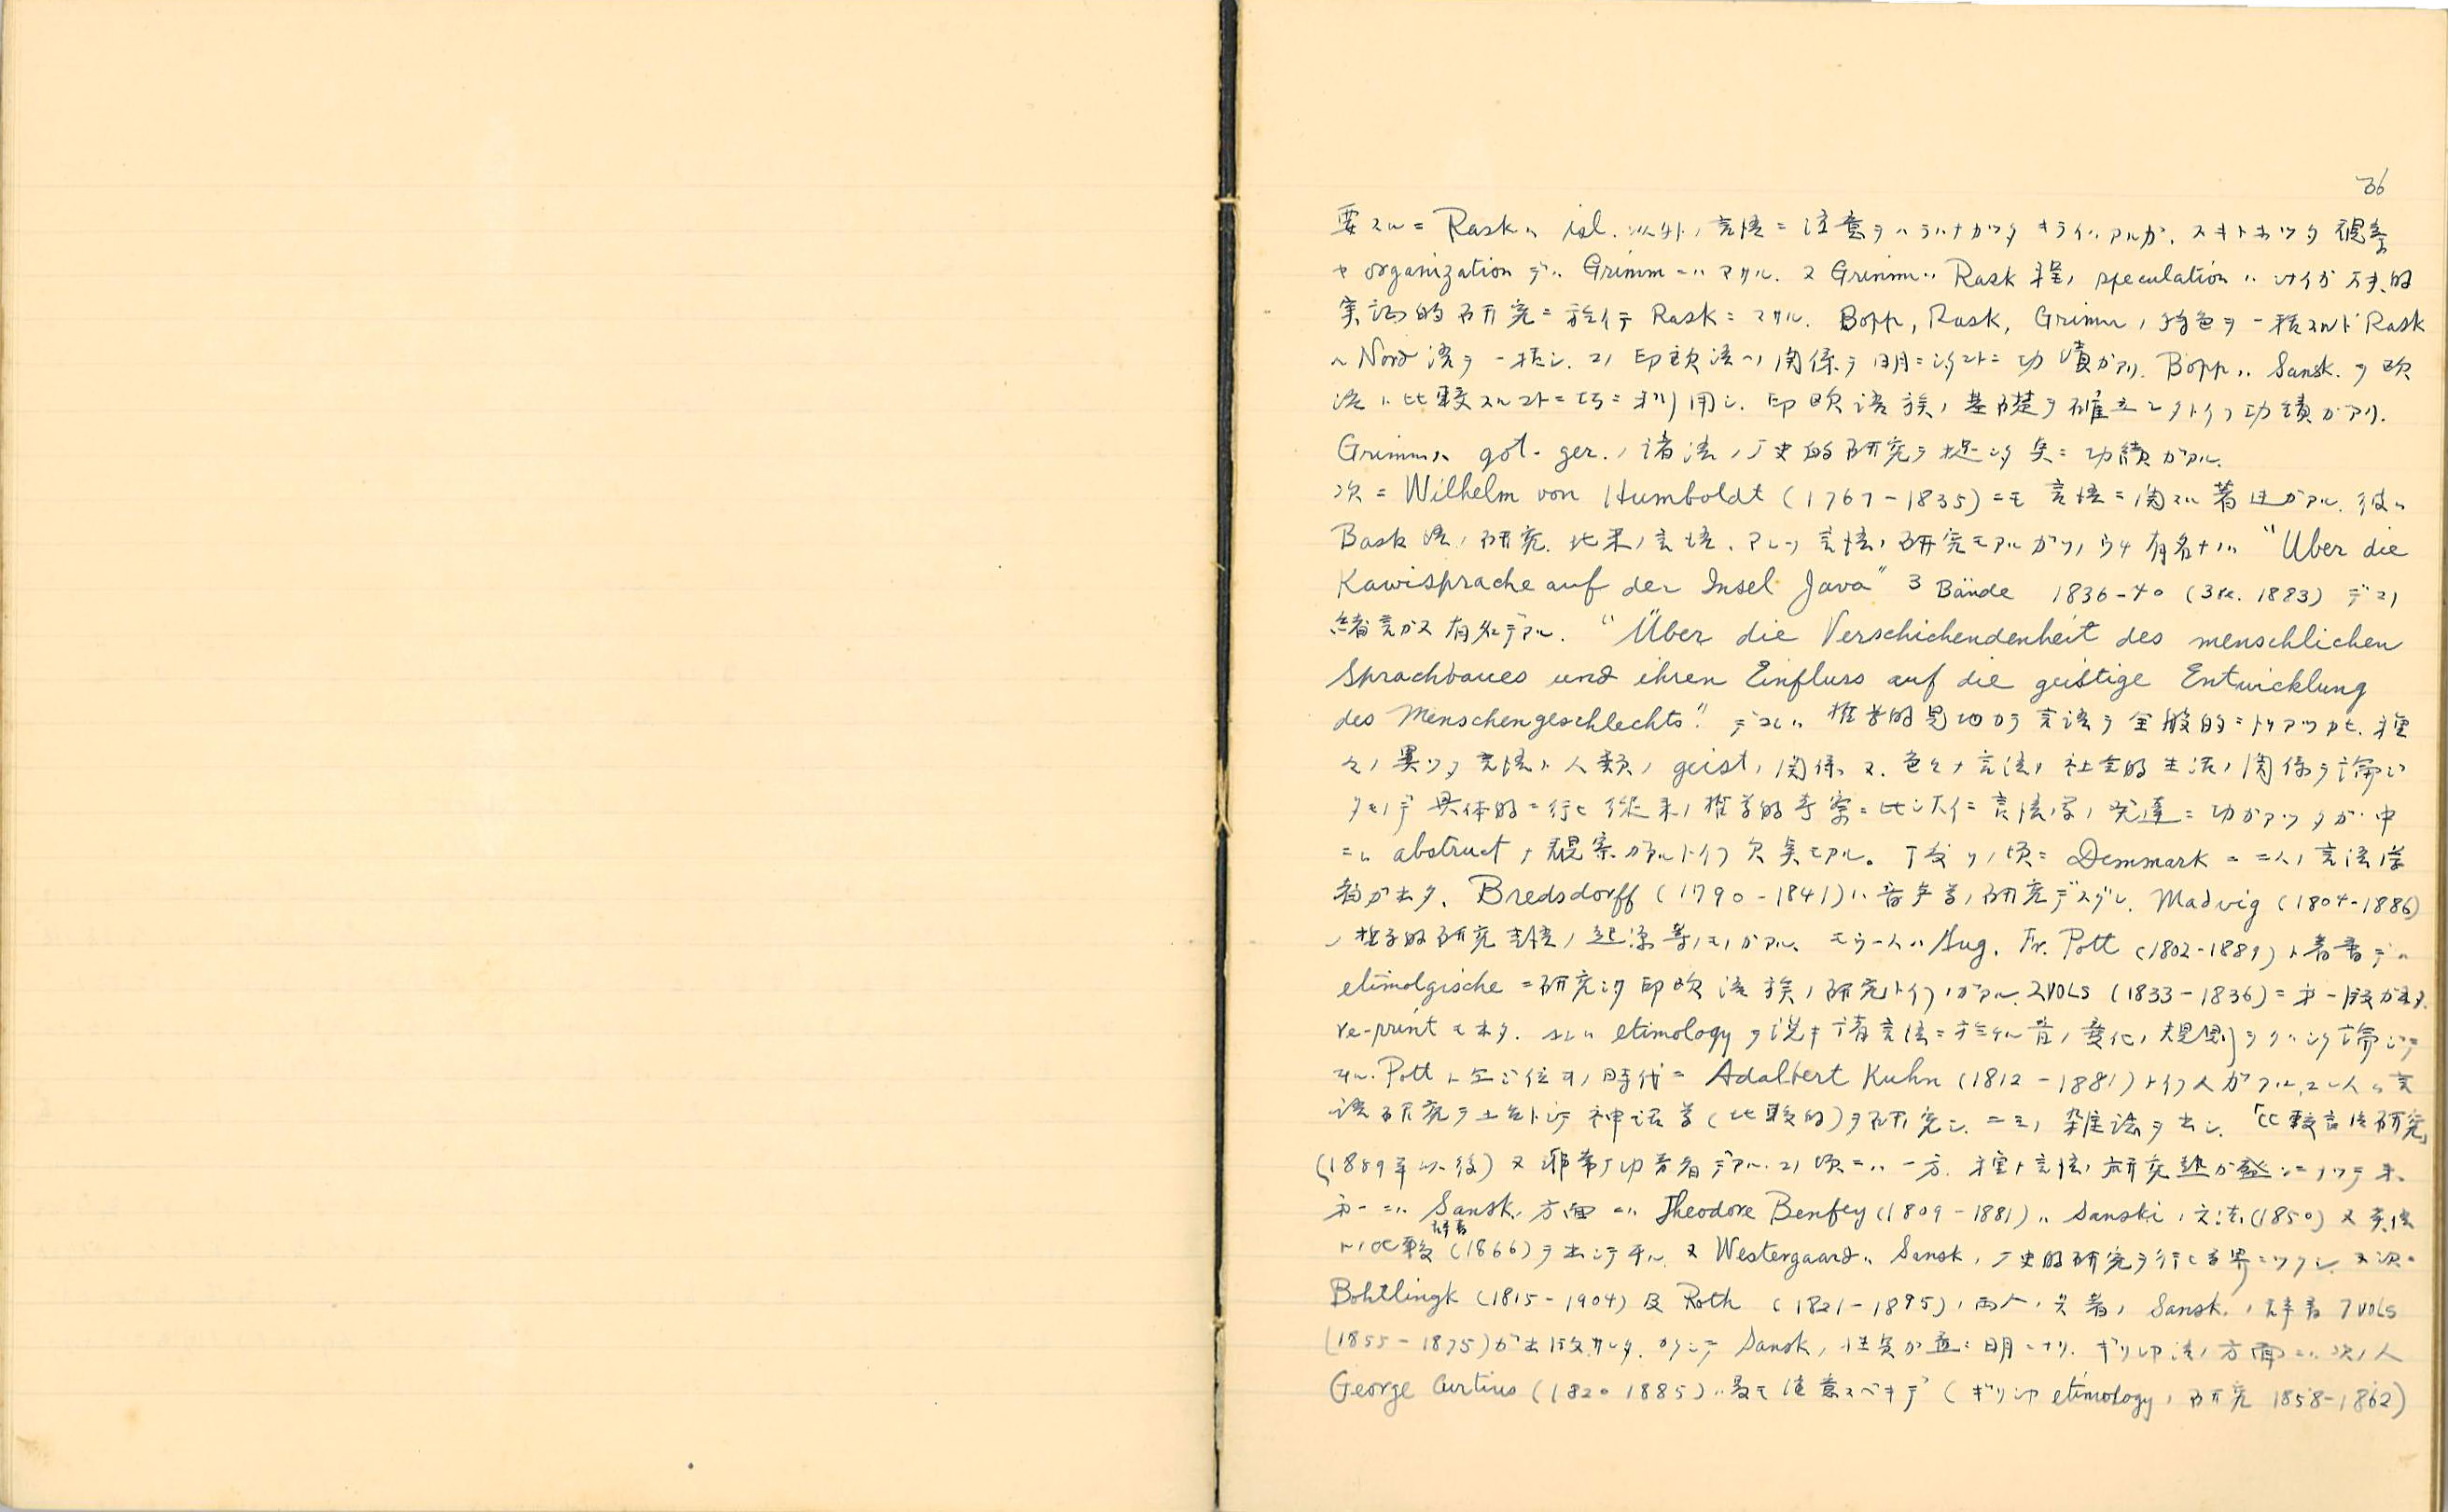 36
要スルニ Rask ハ isl. 以外ノ言語ニ注意ヲハラハナカッタキライハアルガ、スキトホッタ観察
ヤ organization デハ Grimm ニハマサル. 又 Grimm ハ Rask 程ノ speculation ハナイガ 的
実証的研究ニ於イテ Rask ニマサル. Bopp, Rask, Grimm ノ特色ヲ一括スレバ Rask
ハ Nord 語ヲ一括シ. コノ印欧語ヘノ関係ヲ明ニシタコトニ功績ガアリ. Bopp ハ Sansk. ヲ欧
語ト比較スルコトニ巧ニ利用シ. 印欧語族ノ基礎ヲ確立シタトイフ功績ガアリ.
Grimm ハ got. ger. ノ諸語ノ歴史的研究ヲ提シタ点ニ功績ガアル.
次ニ Wilhelm von Humboldt (1767-1835) ニモ言語ニ関スル著述ガアル. 彼ハ
Bask 語ノ研究. 北米ノ言語. マレー言語ノ研究モアルガソノウチ有名ナノハ "Uber die
Kawisprache auf der Insel Java" 3 Bände 1836-40 (3te. 1883) デコノ
緒言ガ又有名デアル. "Über die Verschichendenheit des menschlichen
Sprachbaues und ihren Einfluss auf die geistige Entwicklung
des Menschengeschlechts". デコレハ哲学的見地カラ言語ヲ全般的ニトリアツカヒ. 種
々ノ異ッタ言語ト人類ノ geist ノ関係、又. 色々ナ言語ト社会的生活ノ関係ヲ論ジ
タモノデ具体的ニ行ヒ従来ノ哲学的考察ニ比シ大イニ言語学ノ発達ニ功ガアッタガ. 中
ニハ abstruct ナ観察ガアルトイフ欠点モアル。丁度ソノ頃ニ Denmark ニ二人ノ言語学
者ガ出タ. Bredsdorff (1790-1841) ハ音声学ノ研究デスグレ. Madvig (1804-1886)
ハ哲学的研究言語ノ起源等ノモノガアル. モウ一人ハ Aug. Fr. Pott (1802-1889) ト著書デハ
etimolgische ニ研究シタ印欧語族ノ研究トイフノガアル. 2VOLS (1833-1836) ニ第一版ガ出タ.
re-print モ出タ. コレハ etimology ヲ説キ諸言語ニ於ケル音ノ変化ノ規則ヲクハシク論ジテ
ヰル. Pott ト同ジ位ヰノ時代ニ Adalbert Kuhn (1812-1881) トイフ人ガアル. コノ人ハ言
語研究ヲ土台トシテ神話学(比較的)ヲ研究シ. 二三ノ雑誌ヲ出シ.「比較言語研究」
(1889年以後) 又非常ナ印者デアル. コノ頃ニハ一方. 種々言語ノ研究熱ガ盛ンニナッテ来.
第一ニハ Sansk. 方面ニハ Theodore Benfey (1809-1881) ハ Sanski ノ文法 (1850) 又英語
トノ比較辞書 (1866) ヲ出シテヰル. 又 Westergaard ハ Sansk. ノ歴史的研究ヲ行ヒ学界ニツクシ. 又次ニ
Bohtlingk (1815-1904) 及 Roth (1821-1895) ノ両人ノ共著ノ Sansk. ノ辞書 7VOLS
(1855-1875) ガ出版サレタ. カクシテ Sansk. ノ性質ガ益々明ニナリ. ギリシヤ語ノ方面ニハ次ノ人
George Curtius (1820 1885) ハ最モ注意スベキデ (ギリシヤ etimology ノ研究 1858-1862)